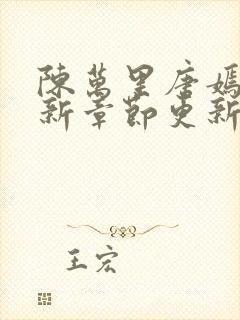 陳萬里唐嫣
新章節更新
王宏